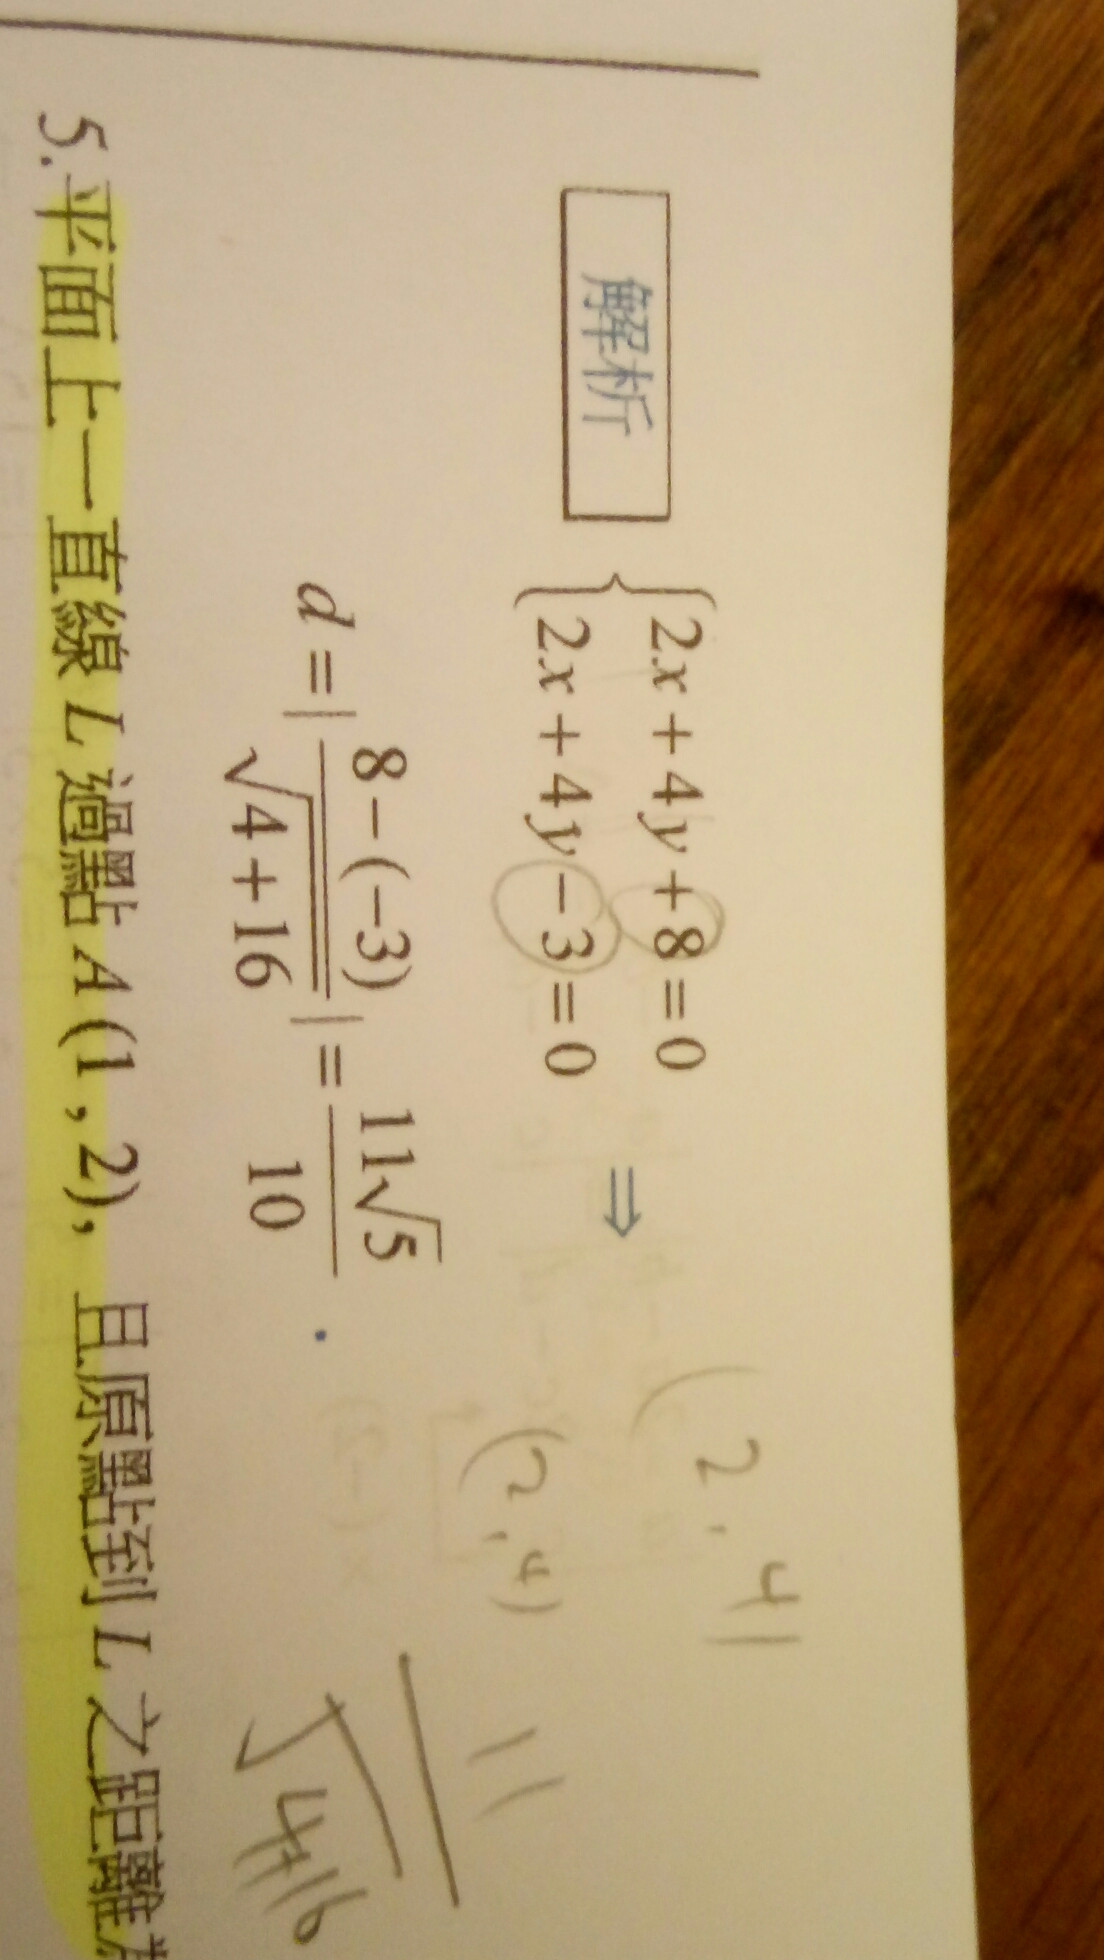 解析
2x+4y+8=0
2x+4y-3=0
⇒
(2,4)
(2,4)
d=|8-(-3)/√4+16|=11√5/10.
11/√4+16
5.平面上一直線L過點A(1,2),且原點到L之距離為